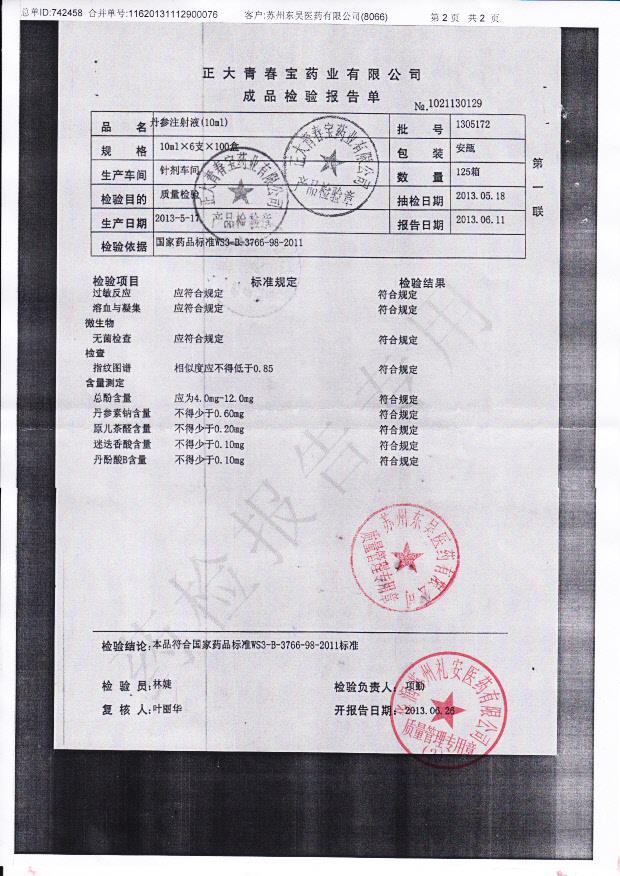 总单ID:742458 合并单号:11620131112900076 客户:苏州东吴医药有限公司(8066) 第2页 共2页
正大青春宝药业有限公司
成品检验报告单
№.1021130129
品 名 丹参注射液(10ml) 批 号 1305172
规 格 10ml×6支×100盒 包 装 安瓿
生产车间 针剂车间 数 量 125箱
检验目的 质量检验 抽检日期 2013.05.18
生产日期 2013-5-17 报告日期 2013.06.11
检验依据 国家药品标准WS3-B-3766-98-2011
第一联
正大青春宝药业有限公司
产品检验章
正大青春宝药业有限公司
产品检验章
检验项目 标准规定 检验结果
过敏反应 应符合规定 符合规定
溶血与凝集 应符合规定 符合规定
微生物
无菌检查 应符合规定 符合规定
检查
指纹图谱 相似度应不得低于0.85 符合规定
含量测定
总酚含量 应为4.0mg-12.0mg 符合规定
丹参素钠含量 不得少于0.60mg 符合规定
原儿茶醛含量 不得少于0.20mg 符合规定
迷迭香酸含量 不得少于0.10mg 符合规定
丹酚酸B含量 不得少于0.10mg 符合规定
药检报告专用
苏州东吴医药有限公司
质量管理专用章
检验结论: 本品符合国家药品标准WS3-B-3766-98-2011标准
检 验 员: 林婕 检验负责人: 项勤
复 核 人: 叶丽华 开报告日期: 2013.06.26
苏州礼安医药有限公司
质量管理专用章